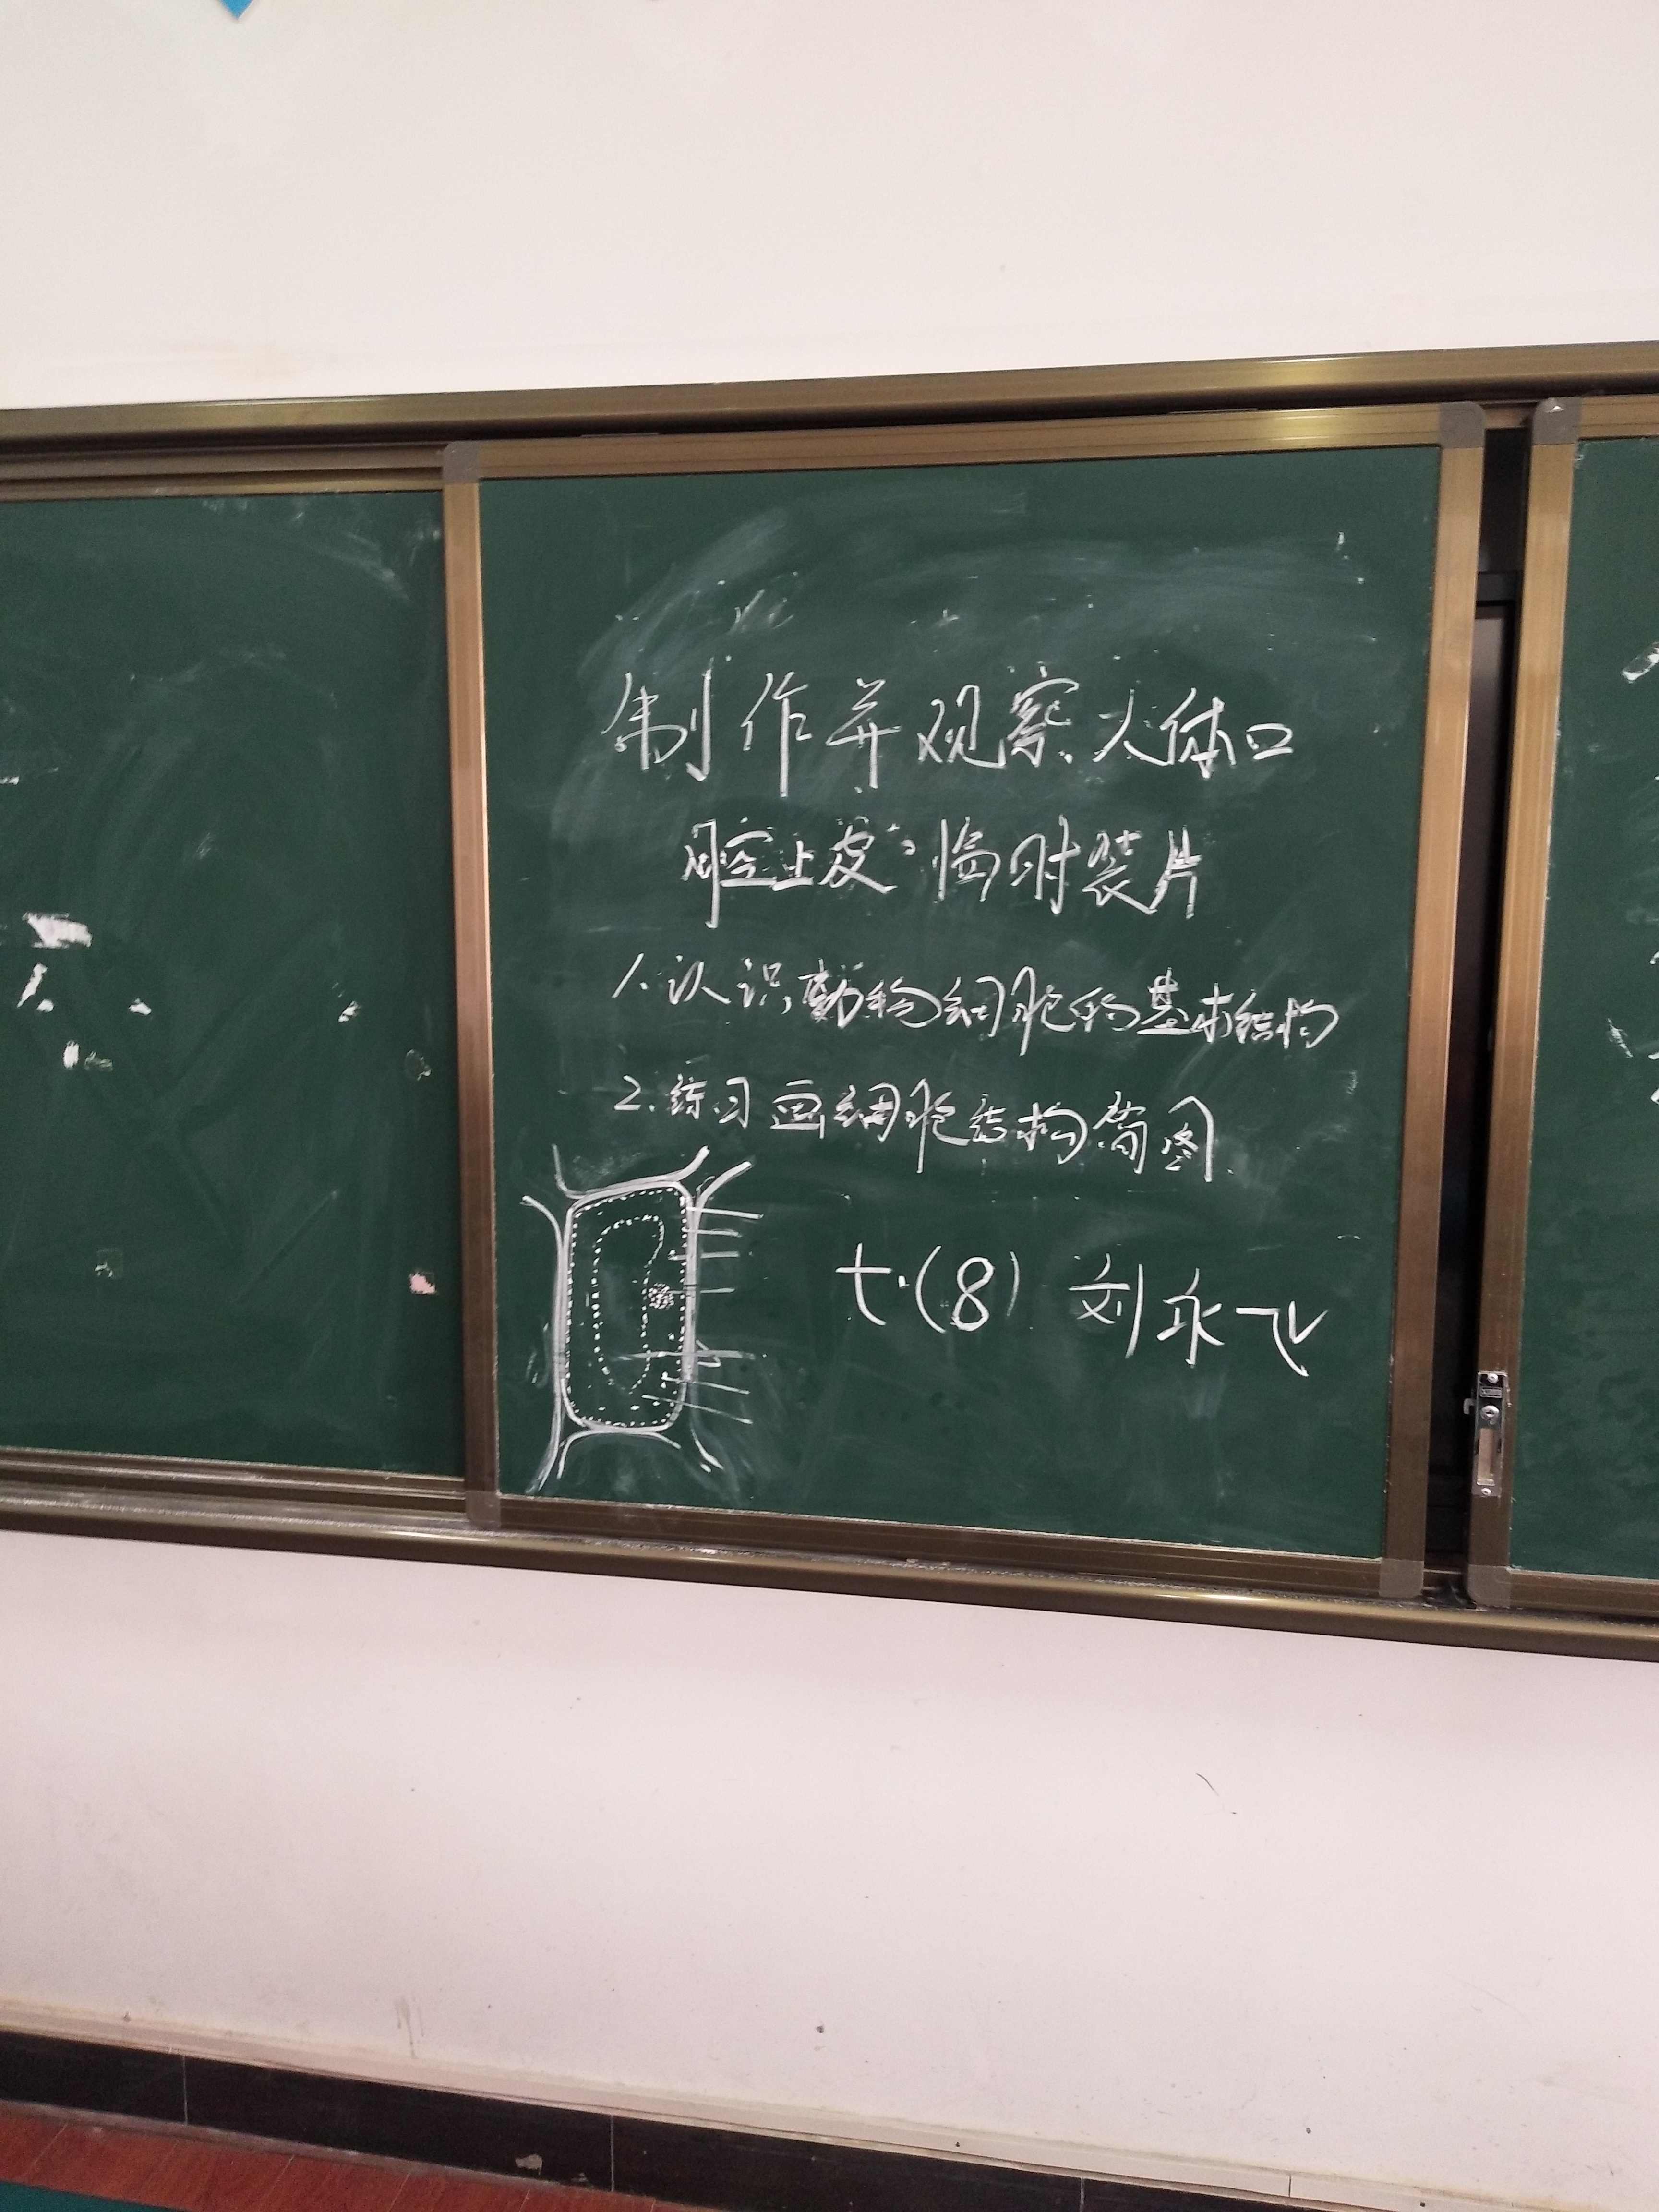 制作并观察人体口
腔上皮临时装片
1.认识动物细胞的基本结构
2.练习画细胞结构简图
七.(8) 刘永飞